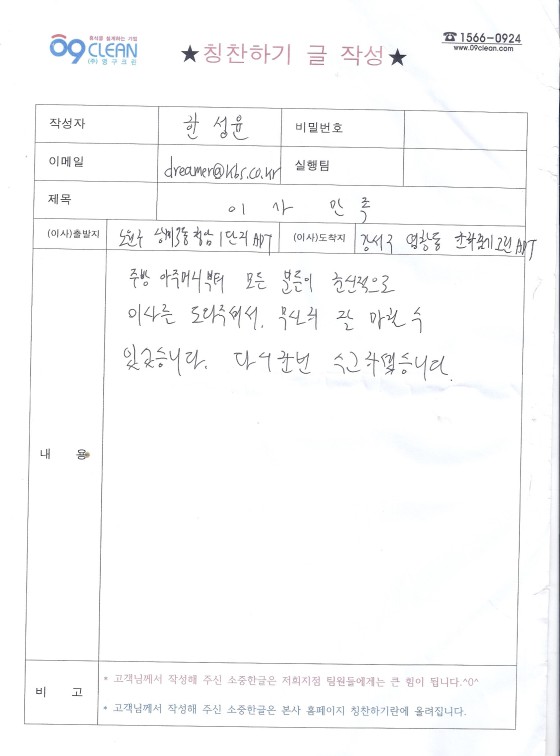 휴식을 설계하는 기업
09 CLEAN
(주)영구크린
★칭찬하기 글 작성★
☎1566-0924
www.09clean.com
작성자 한성윤 비밀번호
이메일 dreamer@kbs.co.kr 실행팀
제목 이사 만족
(이사)출발지 노원구 상계동 1단지 APT (이사)도착지 강서구 염창동 그린 APT
주방 아주머니부터 모든 분들이 헌신적으로
이사를 도와주셔서, 무사히 잘 마칠 수
있었습니다. 다시한번 수고하셨습니다.
내 용
비 고
• 고객님께서 작성해 주신 소중한글은 저희지점 팀원들에게는 큰 힘이 됩니다.^0^
• 고객님께서 작성해 주신 소중한글은 본사 홈페이지 칭찬하기란에 올려집니다.